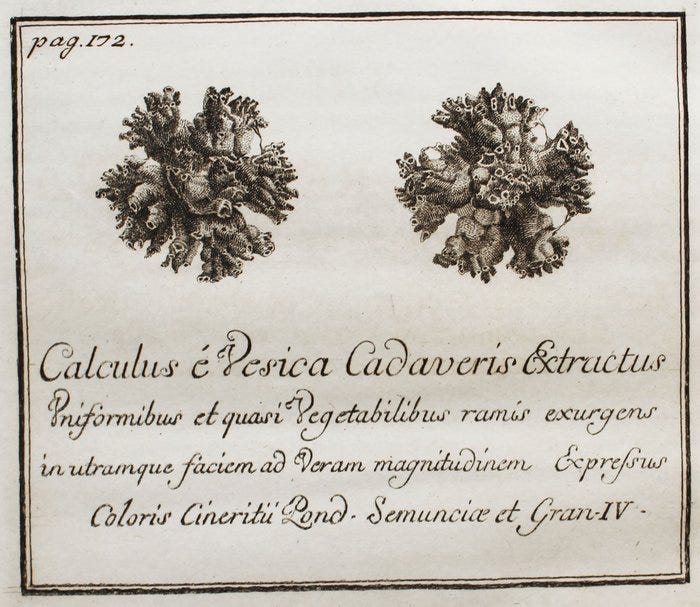 pag. 172.
Calculus é Vesica Cadaveris Extractus
Pniformibus et quasi Vegetabilibus ramis exurgens
in utramque faciem ad Veram magnitudinem Expressus
Coloris Cineritii Pond. Semunciæ et Gran-IV.